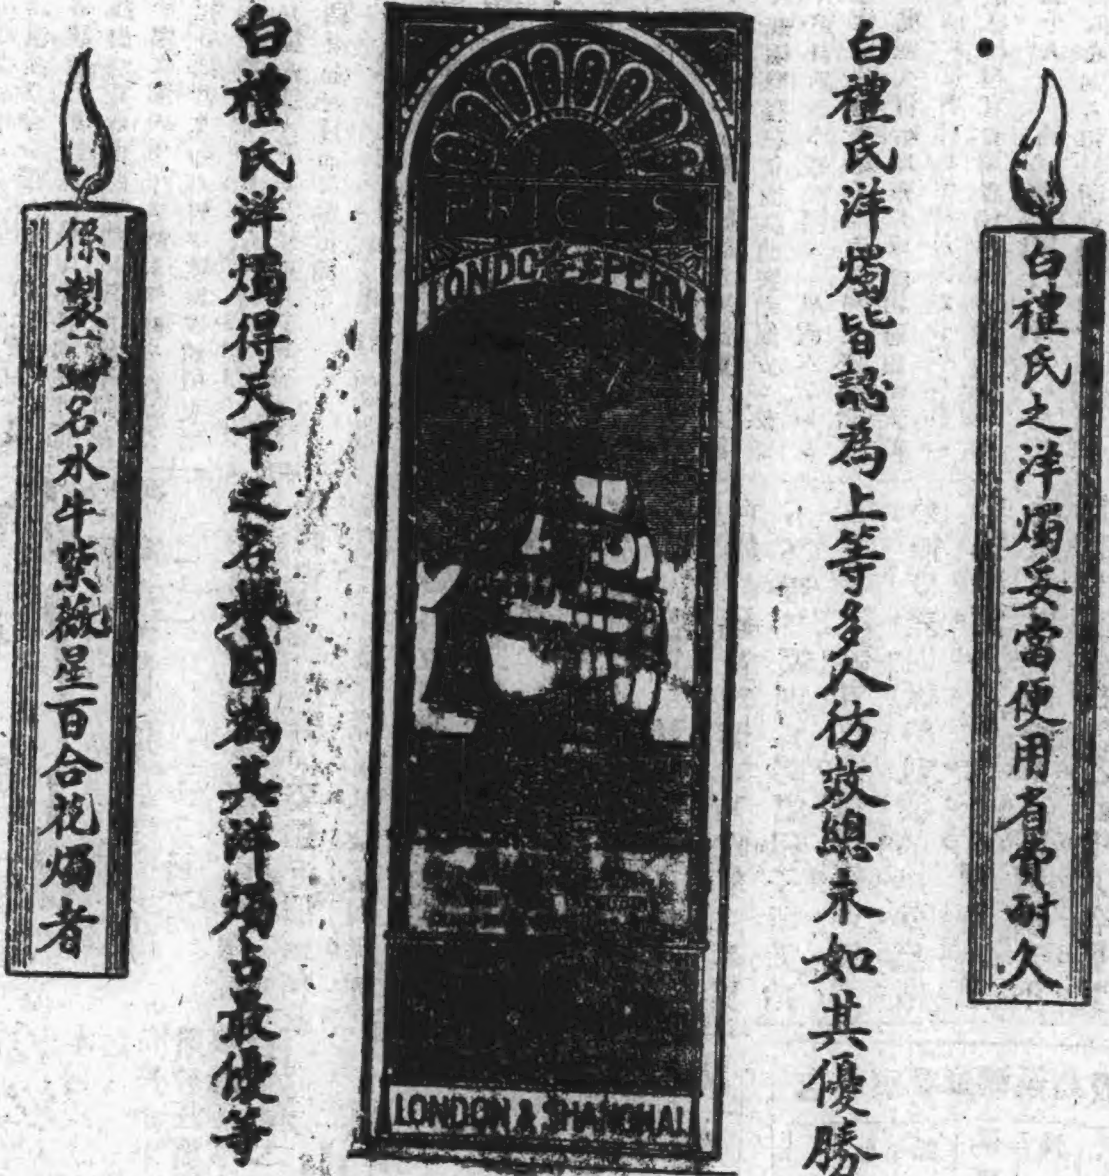 白禮氏之洋燭妥當便用省費耐久
白禮氏洋燭皆認為上等多人彷效總未如其優勝
PRICES
LONDON SPERM
LONDON & SHANGHAI
白禮氏洋燭得天下之名譽因為其洋燭占最優等
係製名水牛紫薇星百合花燭者